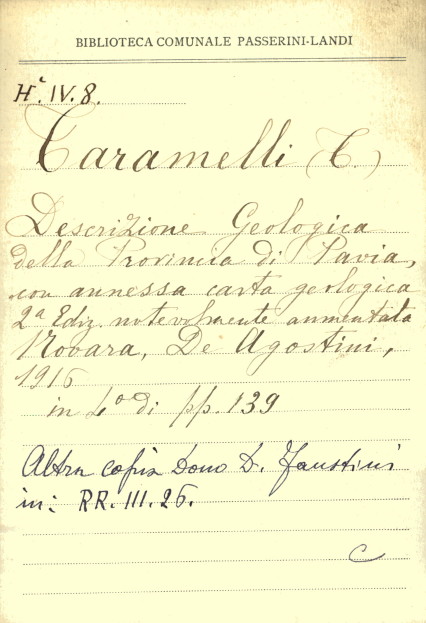 BIBLIOTECA COMUNALE PASSERINI-LANDI
Hª. IV. 8.
Taramelli (T.)
Descrizione Geologica
della Provincia di Pavia,
con annessa carta geologica
2ª Ediz. notevolmente aumentata
Novara, De Agostini,
1916
in 4º di pp. 139
Altra copia Dono D. Faustini
in: RR. III. 26.
C